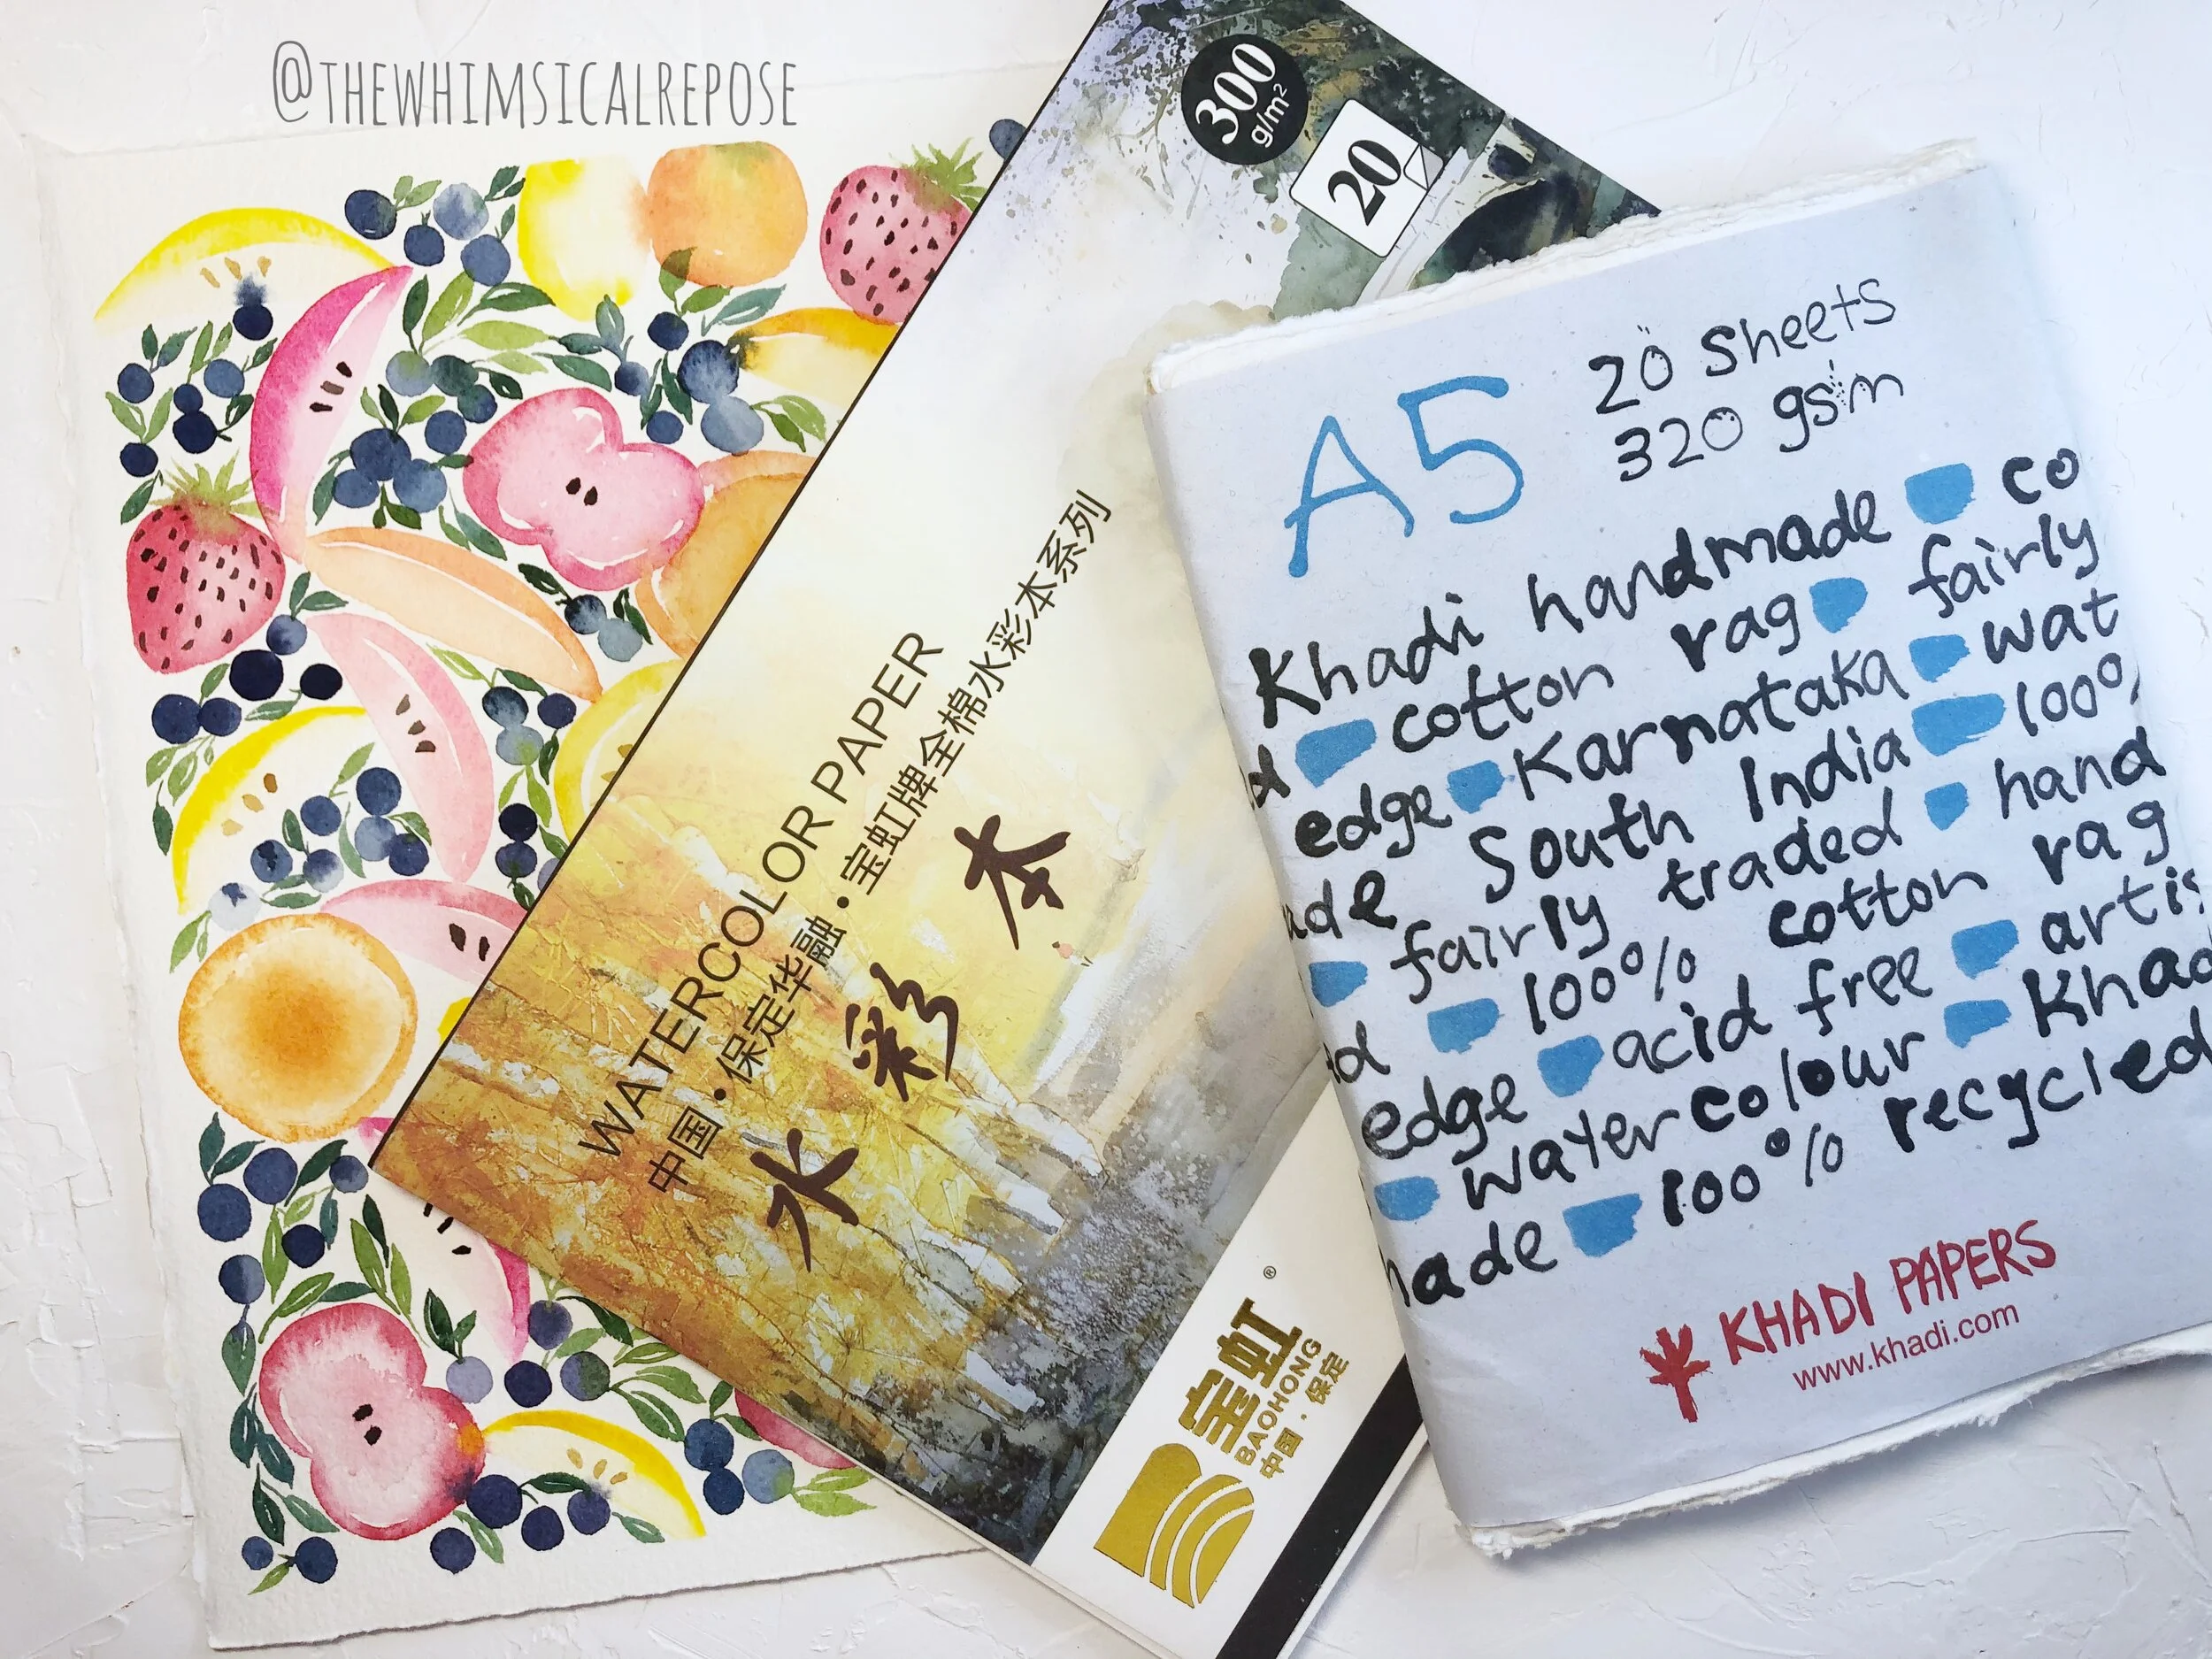 @THEWHIMSICALREPOSE
300
g/m²
20
WATERCOLOR PAPER
中国•保定华融•宝虹牌全棉水彩本系列
水彩本
宝虹®
BAOHONG
中国·保定
A5
20 sheets
320 gsm
Khadi handmade co
cotton rag fairly
edge Karnataka wat
ade South India 100%
fairly traded hand
d 100% cotton rag
edge acid free artis
watercolour Khad
made 100% recycled
KHADI PAPERS
www.khadi.com